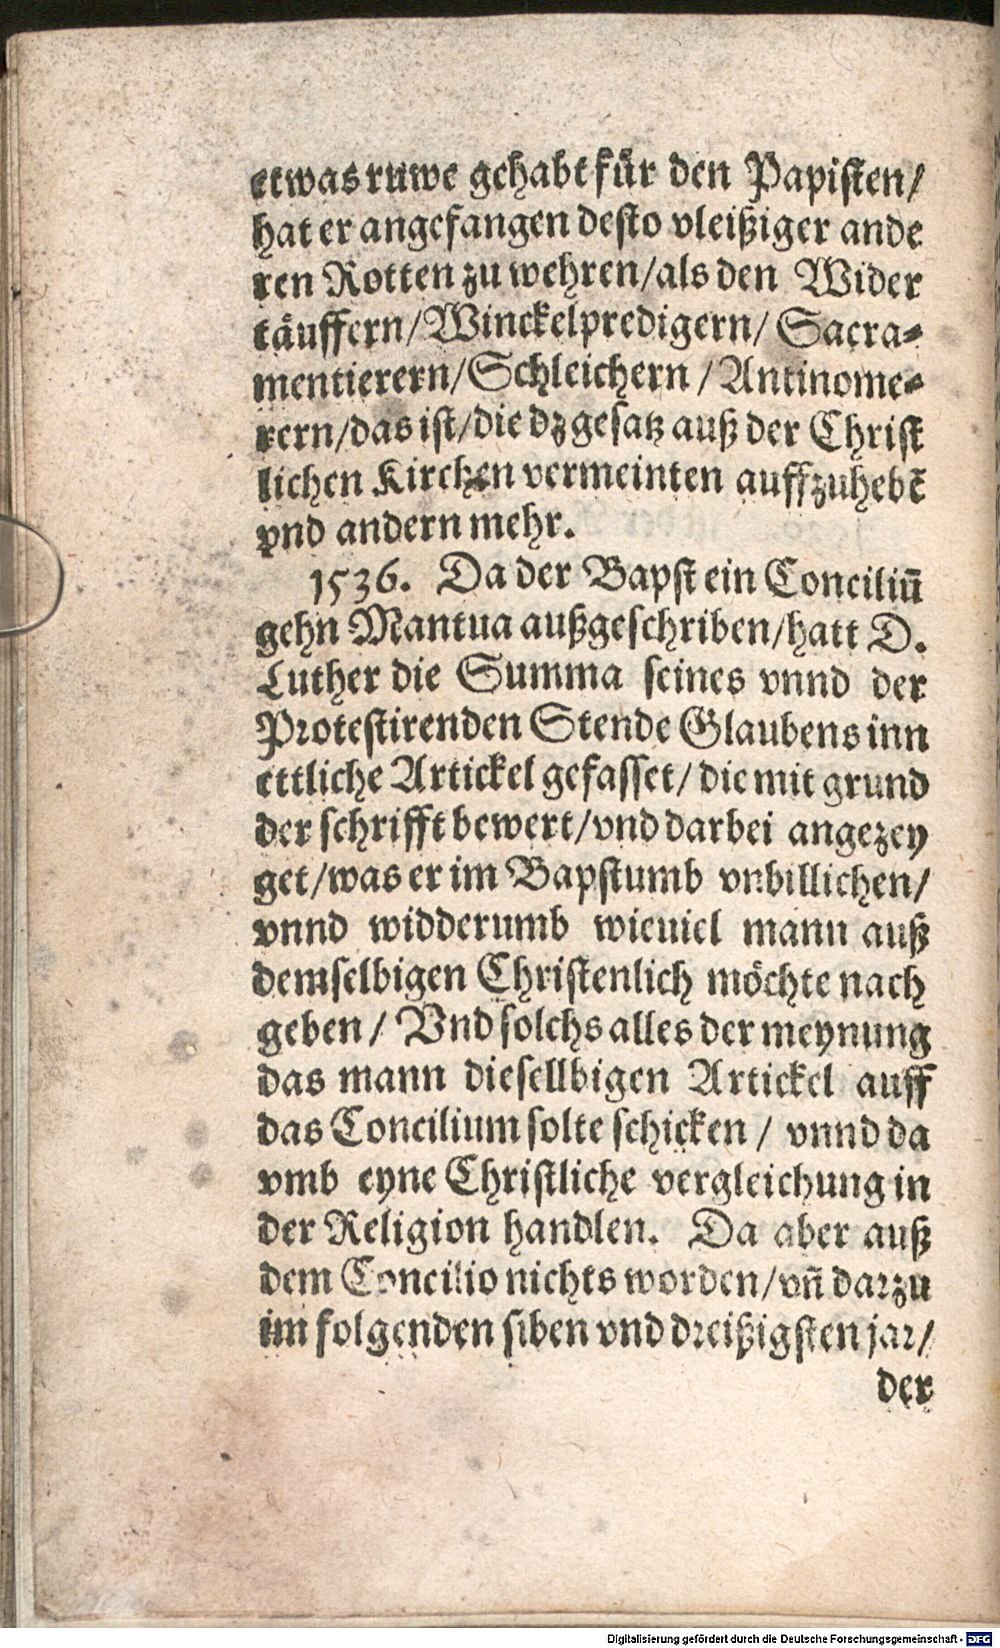 etwas ruwe gehabt für den Papisten/
hat er angefangen desto vleißiger ande
ren Rotten zu wehren/als den Wider
täuffern/Winckelpredigern/ Sacra-
mentierern/Schleichern / Antinome-
rern/das ist/die dz gesatz auß der Christ
lichen Kirchen vermeinten auffzuhebē
vnd andern mehr.
1536. Da der Bapst ein Conciliū
gehn Mantua außgeschriben/hatt D.
Luther die Summa seines vnnd der
Protestirenden Stende Glaubens inn
ettliche Artickel gefasset/ die mit grund
der schrifft bewert/vnd darbei angezey
get/was er im Bapstumb vnbillichen/
vnnd widderumb wieuiel mann auß
demselbigen Christenlich möchte nach
geben/ Vnd solchs alles der meynung
das mann diesellbigen Artickel auff
das Concilium solte schicken / vnnd da
vmb eyne Christliche vergleichung in
der Religion handlen. Da aber auß
dem Concilio nichts worden/vñ darzu
im folgenden siben vnd dreißigsten jar/
der
Digitalisierung gefördert durch die Deutsche Forschungsgemeinschaft - DFG